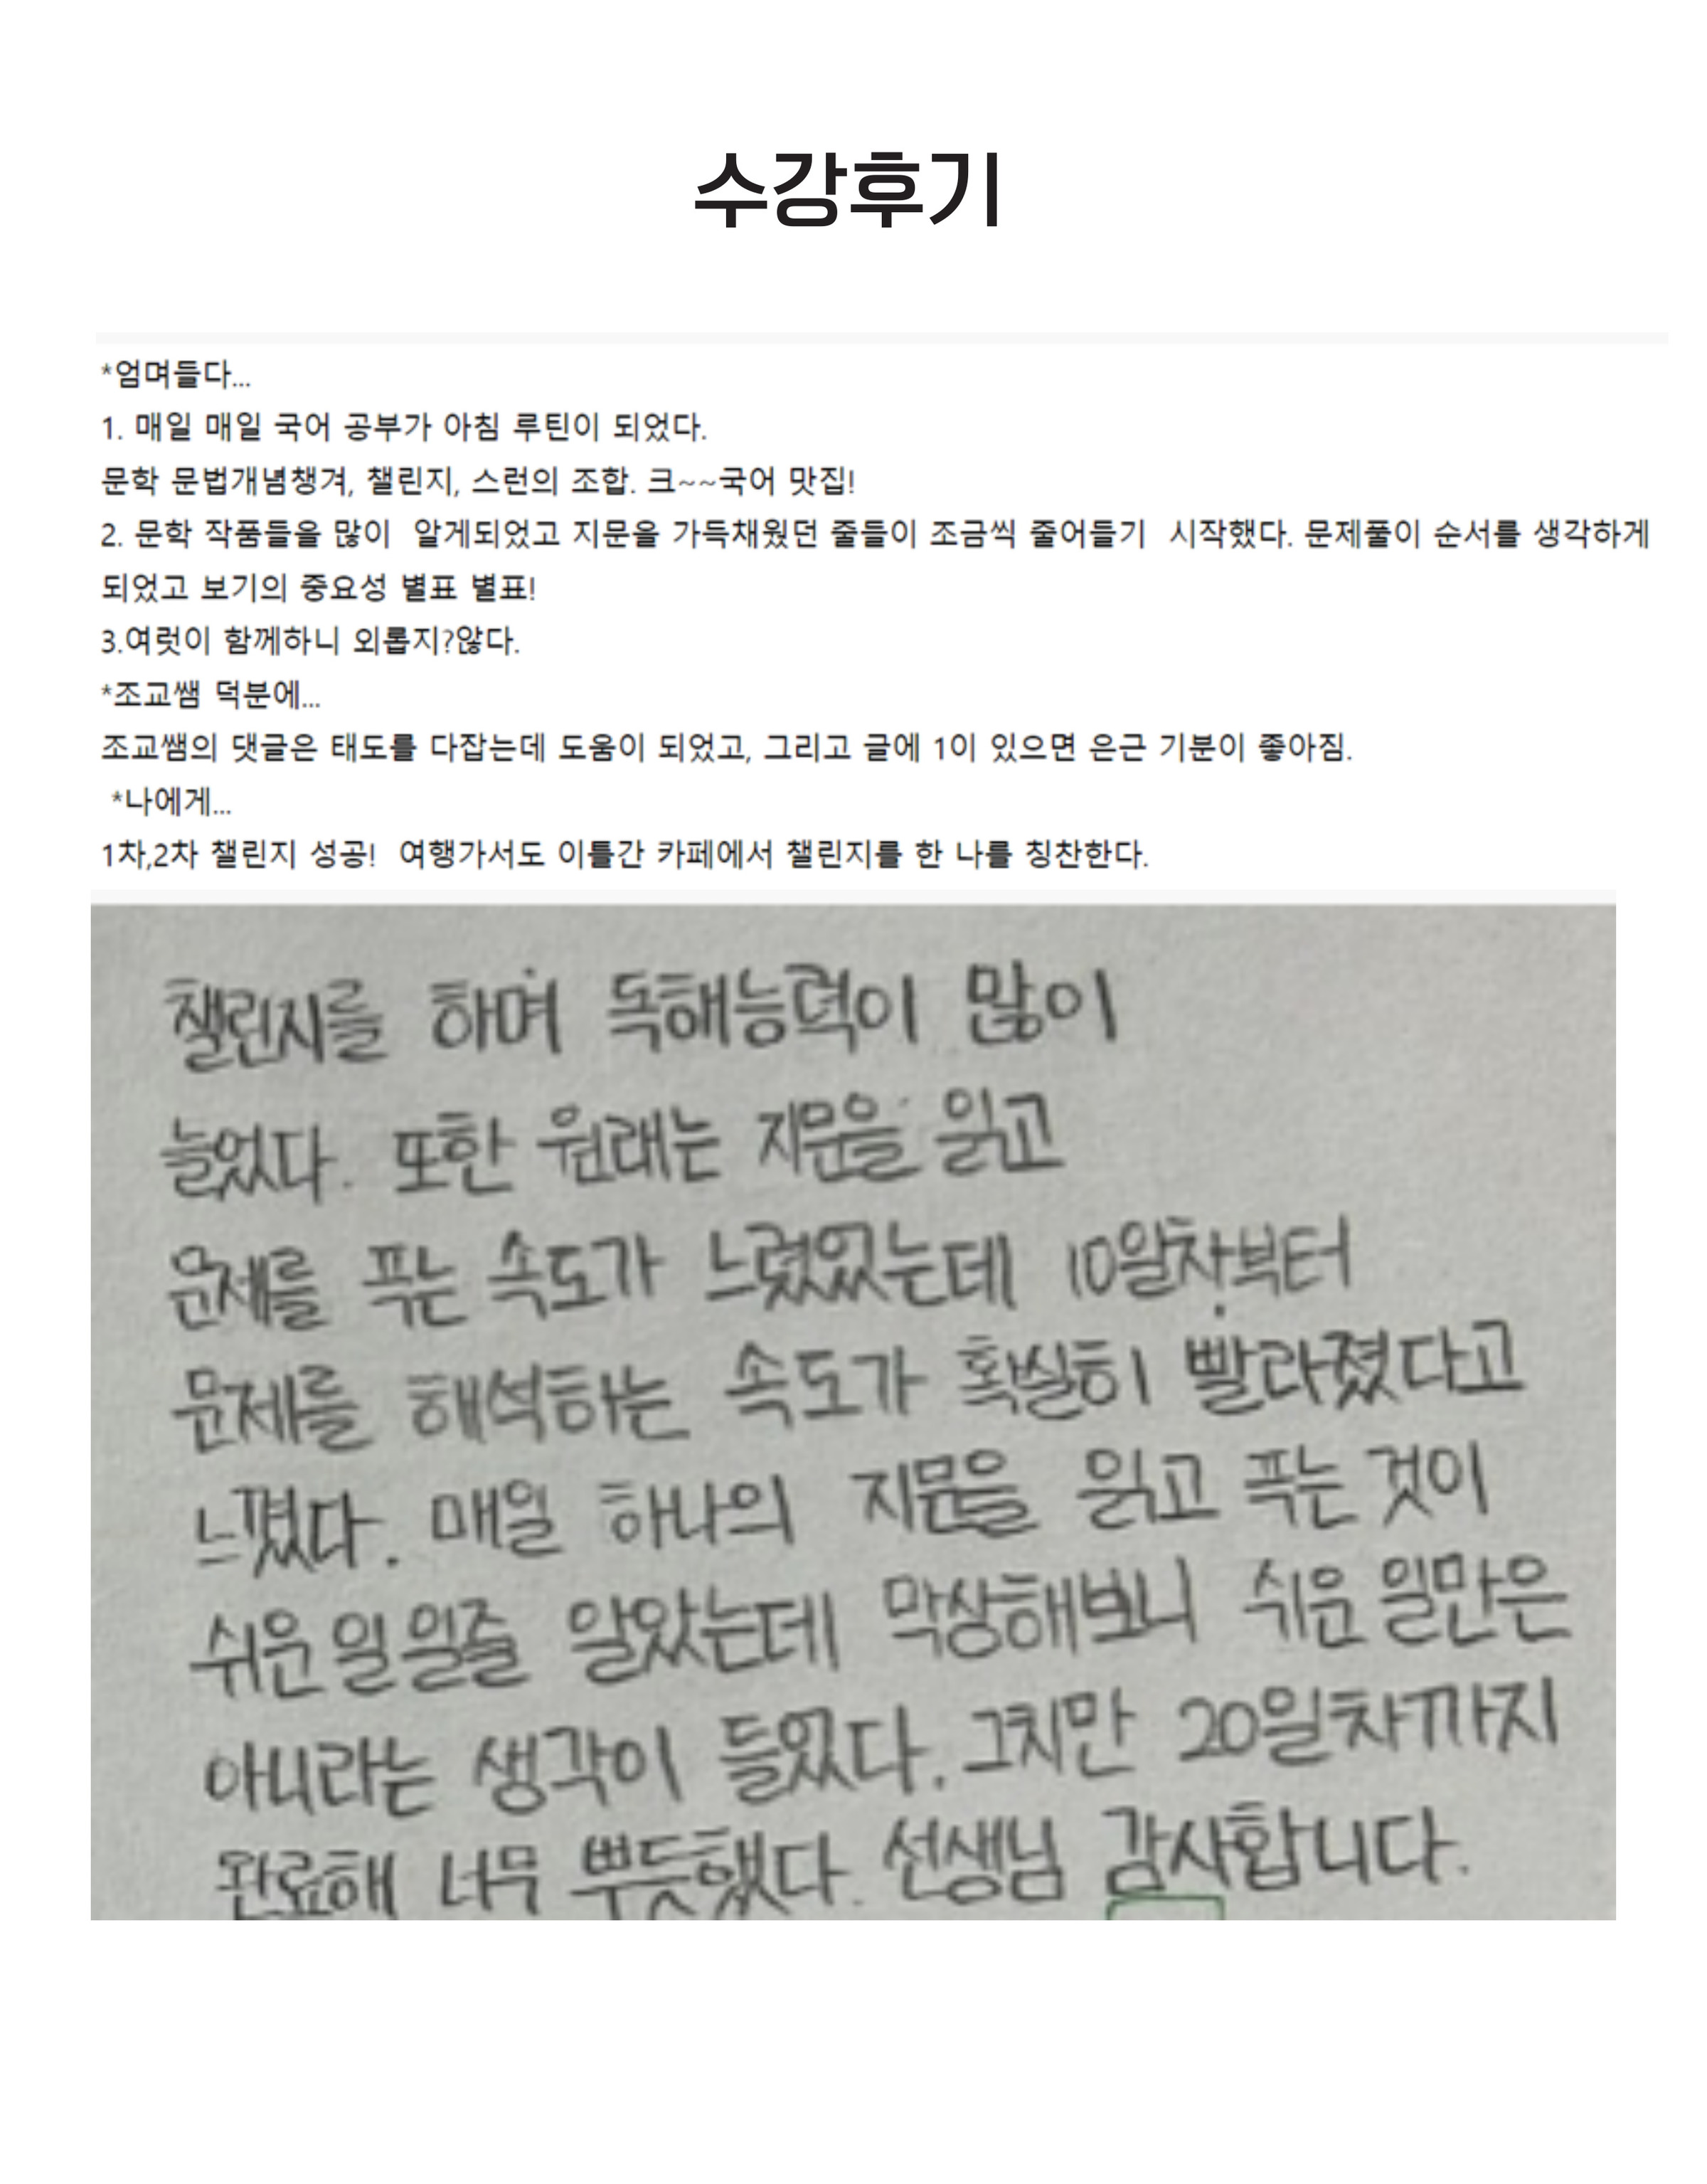 수강후기
*엄며들다...
1. 매일 매일 국어 공부가 아침 루틴이 되었다.
문학 문법개념챙겨, 챌린지, 스런의 조합. 크~~국어 맛집!
2. 문학 작품들을 많이  알게되었고 지문을 가득채웠던 줄들이 조금씩 줄어들기  시작했다. 문제풀이 순서를 생각하게
되었고 보기의 중요성 별표 별표!
3.여럿이 함께하니 외롭지?않다.
*조교쌤 덕분에...
조교쌤의 댓글은 태도를 다잡는데 도움이 되었고, 그리고 글에 1이 있으면 은근 기분이 좋아짐.
*나에게...
1차,2차 챌린지 성공!  여행가서도 이틀간 카페에서 챌린지를 한 나를 칭찬한다.
챌린지를 하며 독해능력이 많이
늘었다. 또한 원래는 지문을 읽고
문제를 푸는 속도가 느렸었는데 10일차부터
문제를 해석하는 속도가 확실히 빨라졌다고
느꼈다. 매일 하나의 지문을 읽고 푸는 것이
쉬운일일줄 알았는데 막상해보니 쉬운일만은
아니라는 생각이 들었다. 그치만 20일차까지
완료해 너무 뿌듯했다. 선생님 감사합니다.